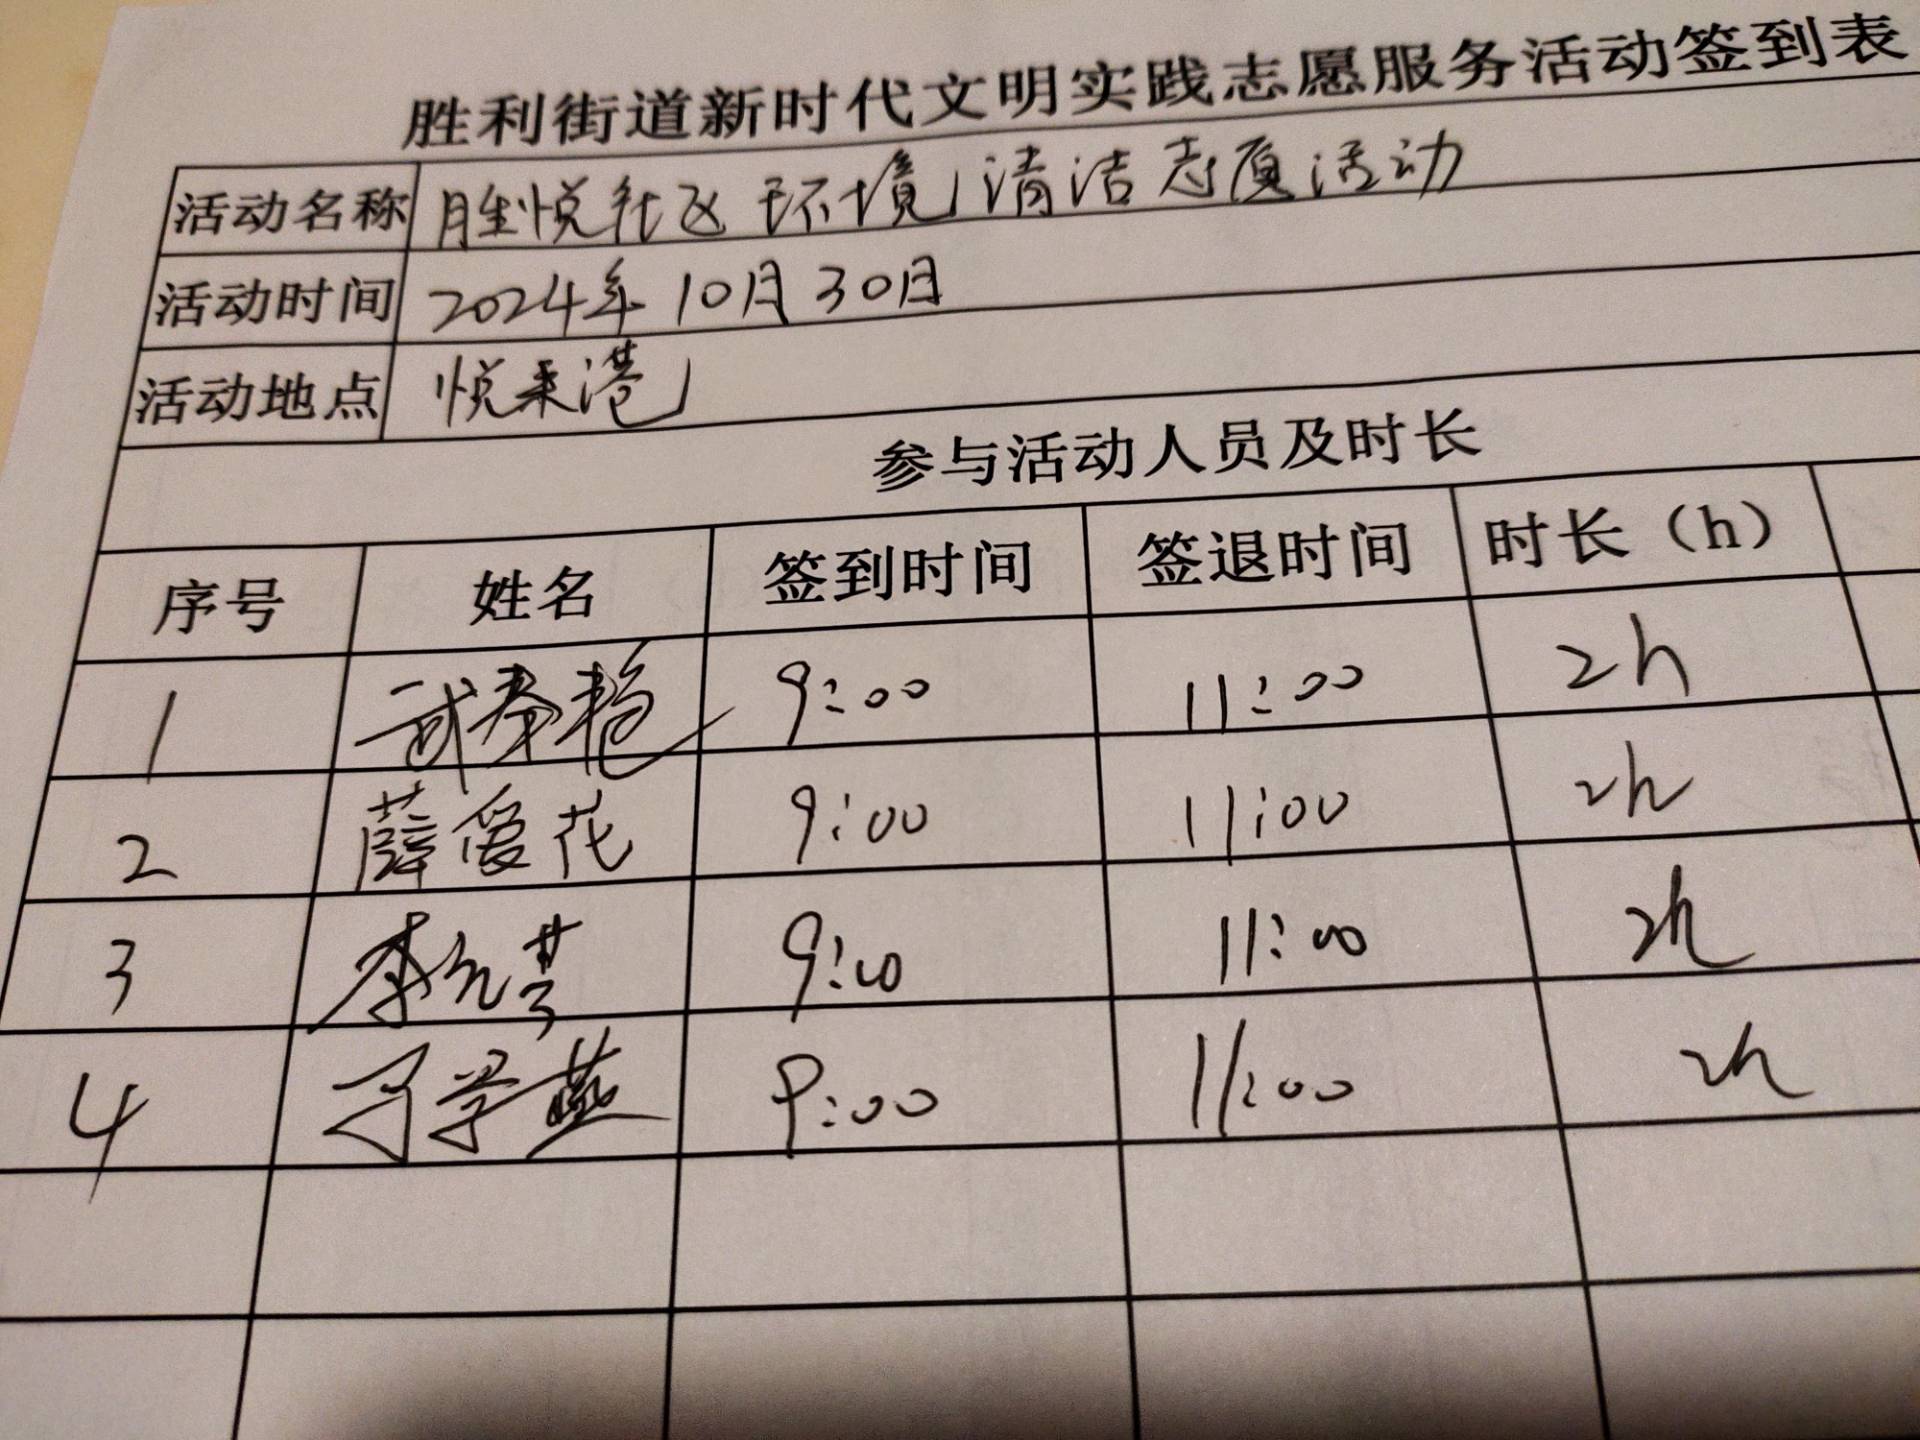 胜利街道新时代文明实践志愿服务活动签到表
活动名称 胜悦社区环境清洁志愿活动
活动时间 2024年10月30日
活动地点 悦来港
参与活动人员及时长
序号 姓名 签到时间 签退时间 时长（h）
1 武春艳 9:00 11:00 2h
2 薛爱花 9:00 11:00 2h
3 李 9:00 11:00 2h
4 刁学燕 9:00 11:00 2h